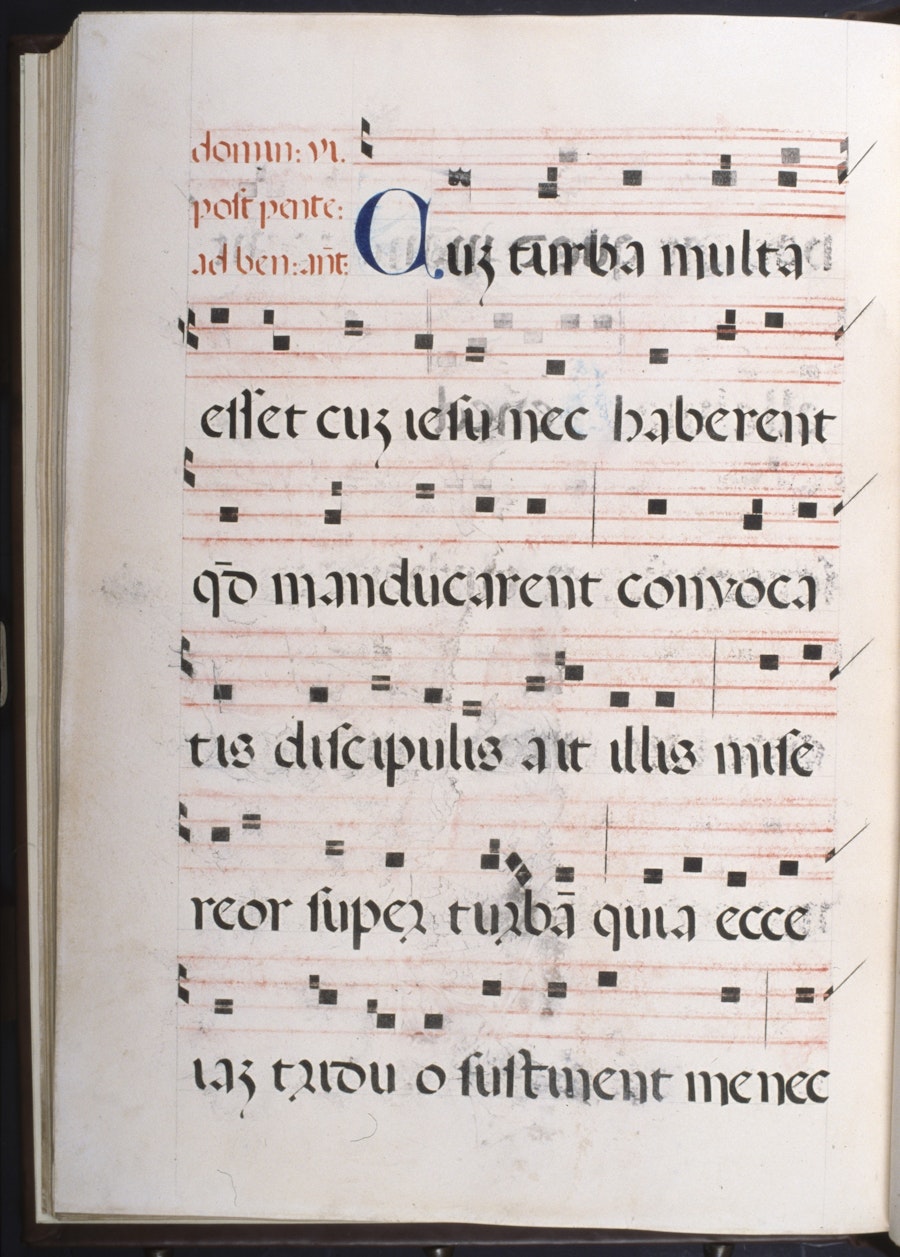 domin: vi.
post pente:
ad ben: an̄t:
Cuȝ turba multa
esset cuȝ iesu nec haberent
qd̄ manducarent convoca
tis discipulis ait illis mise
reor super turbā quia ecce
iaȝ triduo sustinent me nec